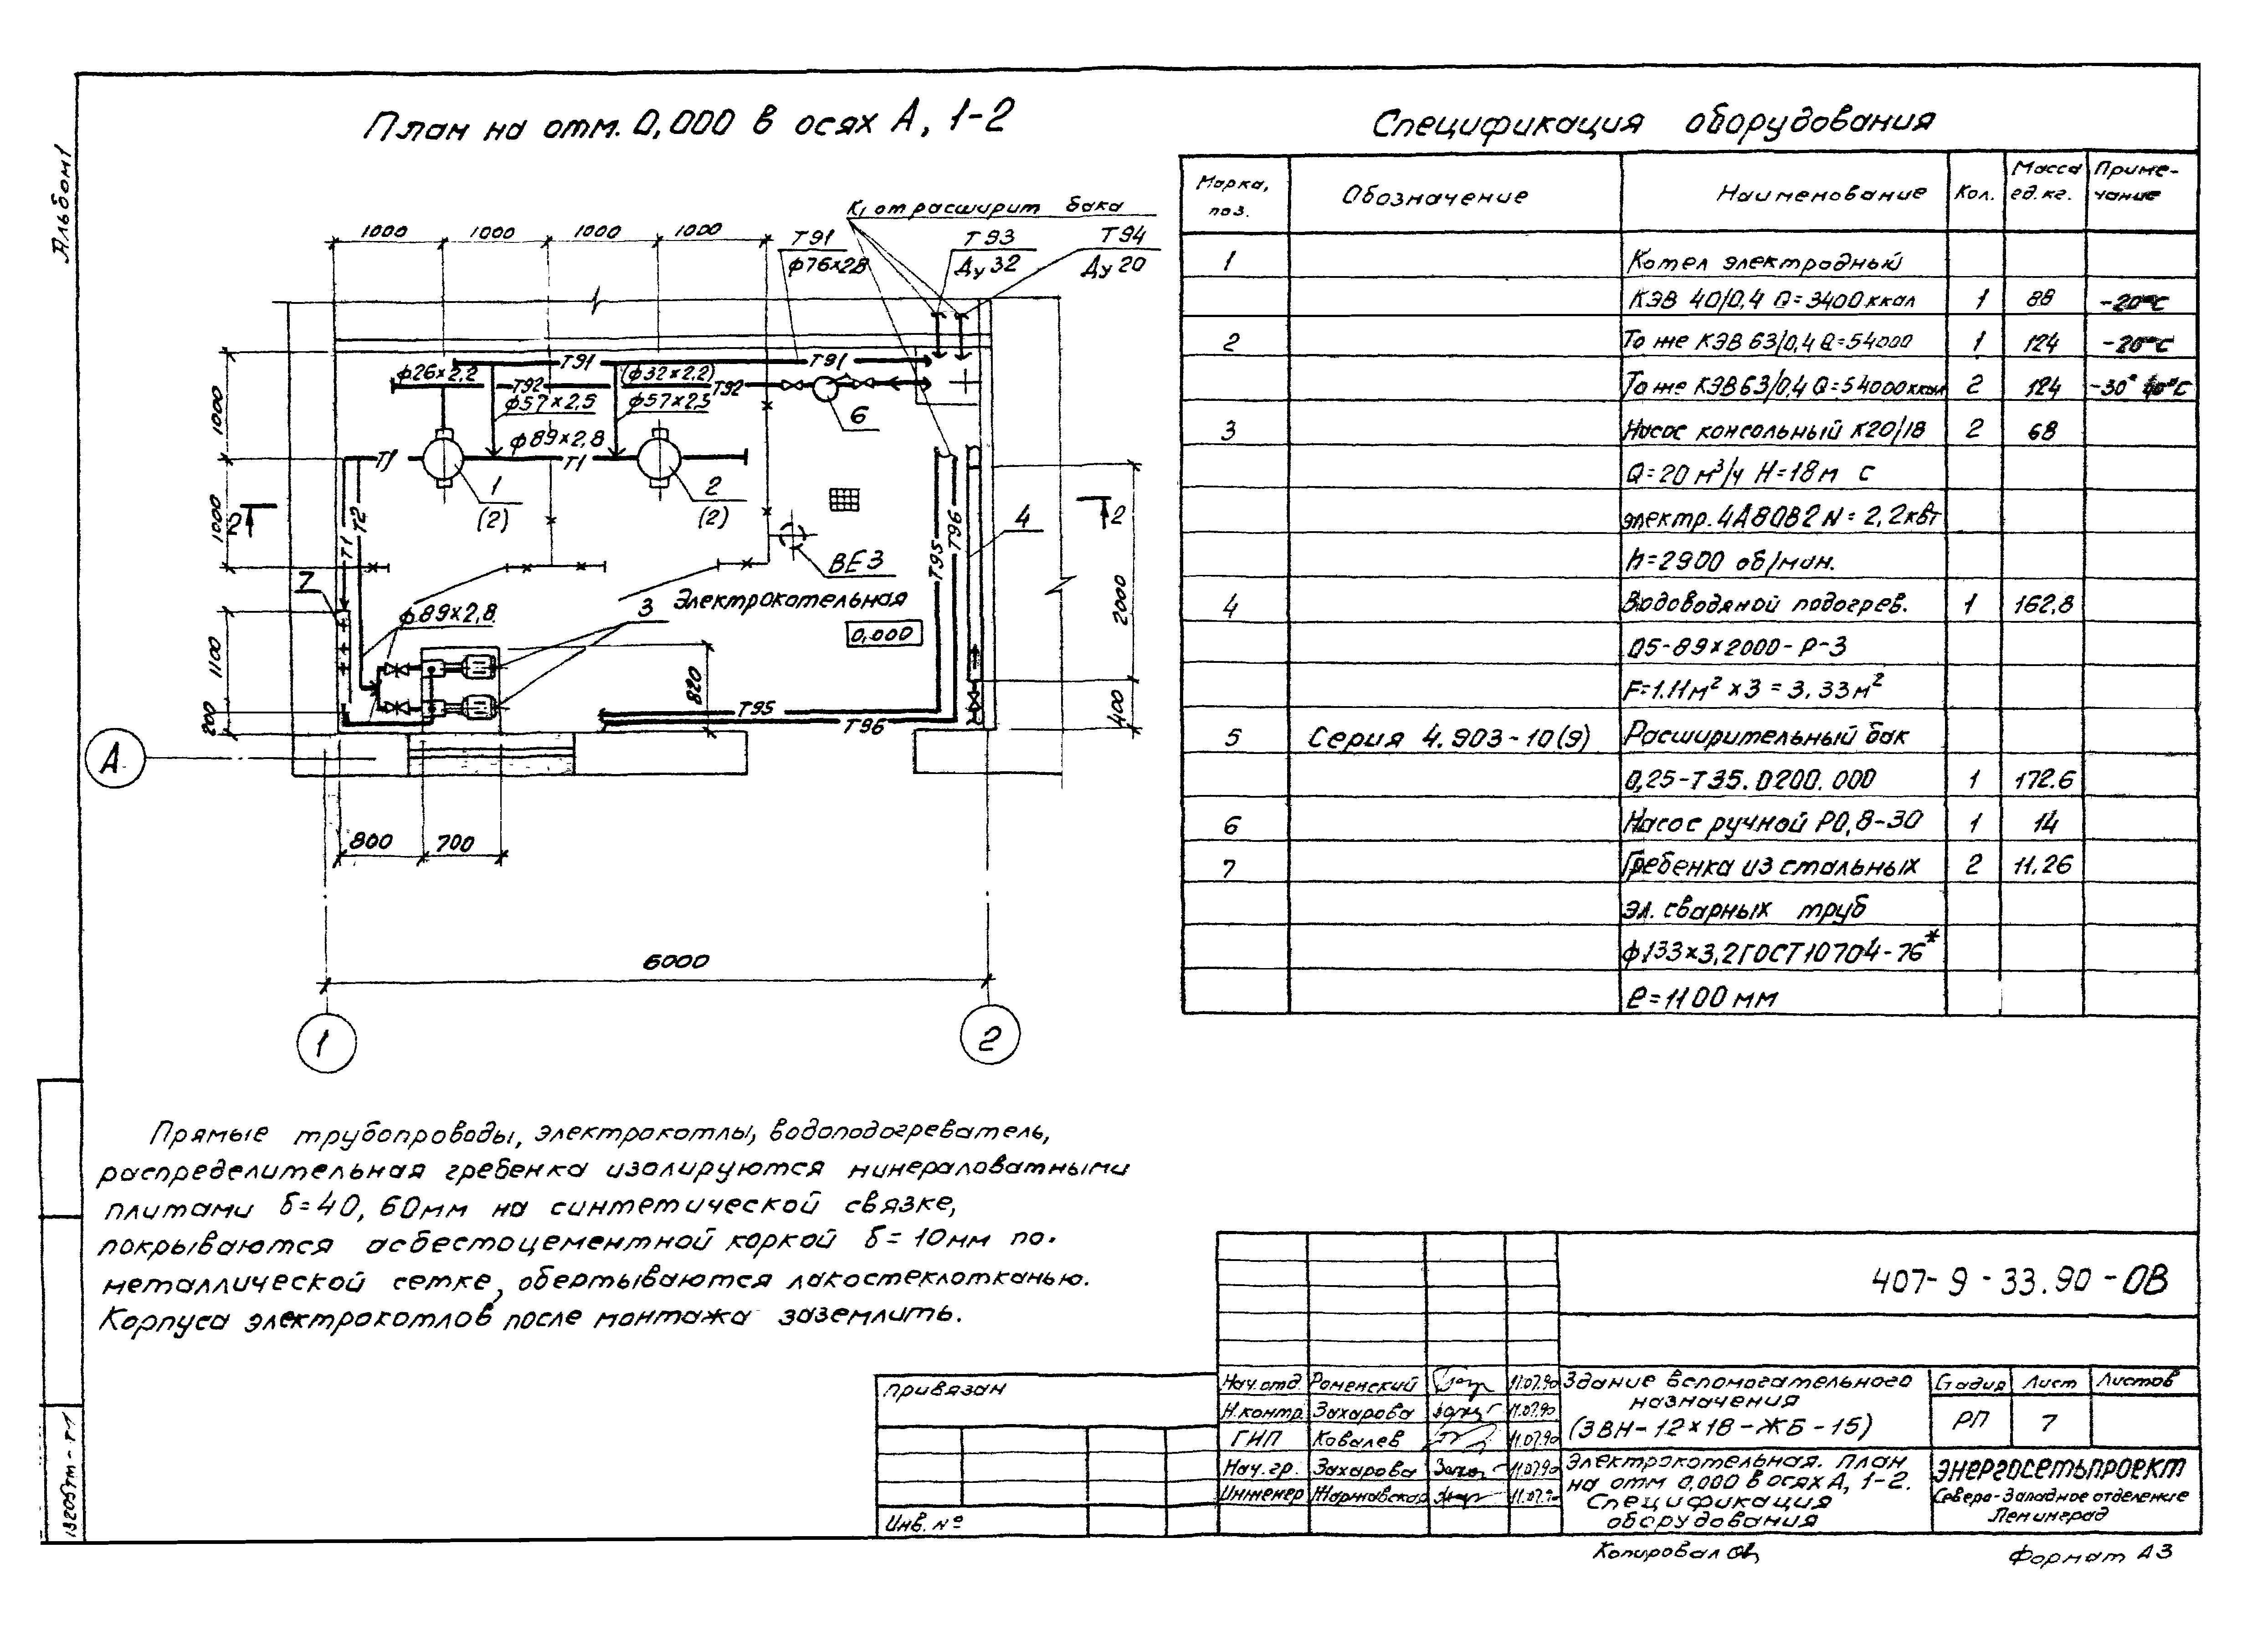 Альбом 1
План на отм. 0,000 в осях А, 1-2
К, от расширит бака
1000 1000 1000 1000
Т91 Т93 Т94
ф76×2,8 Ду 32 Ду 20
Т91 Т91
ф26×2,2 Т92 (ф32×2,2) Т92
ф57×2,5 ф57×2,5
6
ф89×2,8
Т1 Т1
1 2
(2) (2)
1000
1000
2 2
Т1 Т2
Т95 Т96
4
ВЕ3
7
ф89×2,8
3 Электрокотельная
0,000
2000
1100
820
400
200
Т95
Т96
А
800 700
6000
1 2
Спецификация оборудования
Марка, поз. Обозначение Наименование Кол. Масса ед. кг. Приме-чание
1 Котел электродный
КЭВ 40/0,4 Q=3400 ккал 1 88 -20°С
2 То же КЭВ 63/0,4 Q=54000 1 124 -20°С
То же КЭВ 63/0,4 Q=54000 ккал 2 124 -30°
3 Насос консольный К20/18 2 68
Q=20 м³/ч Н=18м с
электр. 4А80В2 N=2,2квт
n=2900 об/мин.
4 Водоводяной подогрев. 1 162,8
05-89×2000-Р-3
F=1.11м² × 3 = 3,33м²
5 Серия 4.903-10(9) Расширительный бак
0,25-Т35.0200.000 1 172.6
6 Насос ручной Р0,8-30 1 14
7 Гребенка из стальных 2 11.26
эл. сварных труб
ф133×3,2 ГОСТ 10704-76*
ℓ=1100 мм
Прямые трубопроводы, электрокотлы, водоподогреватель,
распределительная гребенка изолируются минераловатными
плитами δ=40, 60мм на синтетической связке,
покрываются асбестоцементной коркой δ=10мм по
металлической сетке, обертываются лакостеклотканью.
Корпуса электрокотлов после монтажа заземлить.
407-9-33.90-ОВ
Привязан
Инв. №
Нач.отд. Роменский 11.07.90
Н.контр. Захарова 11.07.90
ГИП Ковалев 11.07.90
Нач. гр. Захарова 11.07.90
Инженер 11.07.90
Здание вспомогательного
назначения
(ЗВН-12×18-ЖБ-15)
Стадия Лист Листов
РП 7
Электрокотельная. План
на отм 0,000 в осях А, 1-2.
Спецификация
оборудования
ЭНЕРГОСЕТЬПРОЕКТ
Северо-Западное отделение
Ленинград
13205тм-т1
Копировал
Формат А3